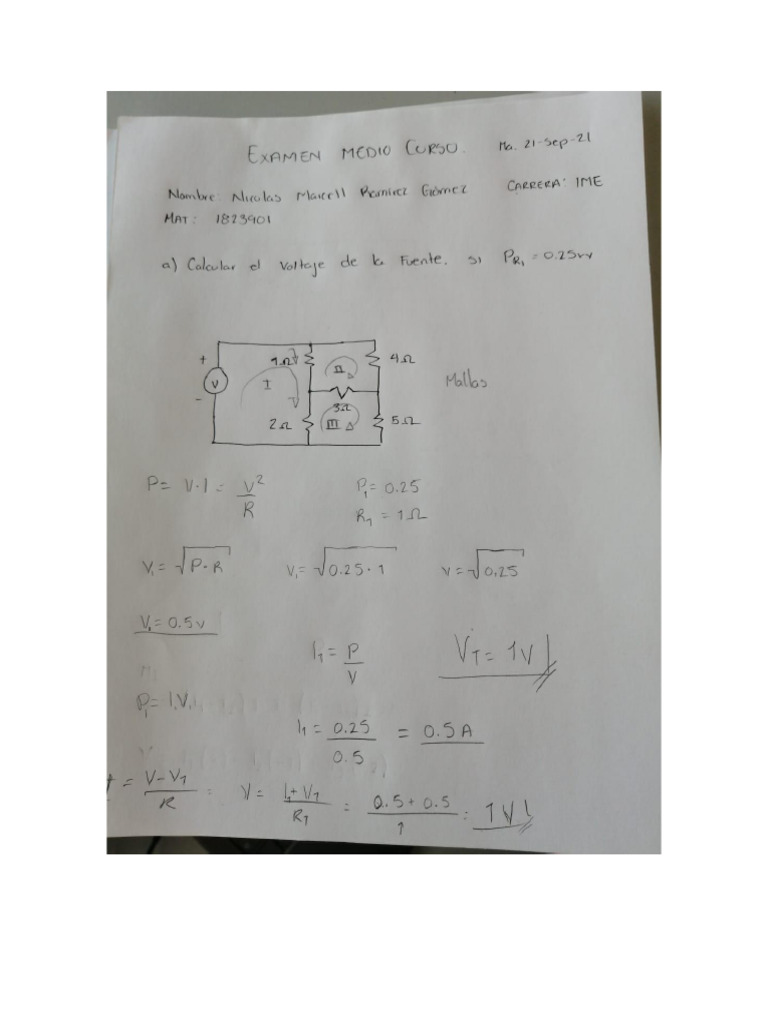 EXAMEN MEDIO CURSO. Ma. 21-Sep-21
Nombre: Nicolas Marcell Ramirez Gómez CARRERA: IME
MAT: 1823901
a) Calcular el Voltaje de la Fuente. si PR1 = 0.25w
+ 1Ω II 4Ω
V I Mallas
- 3Ω
2Ω III 5Ω
P= V·I = V²/R P1= 0.25
R1 = 1Ω
V1= √P·R V1= √0.25·1 V= √0,25
V1= 0.5v
I1= P/V VT= 1V
P1= I.V.
I1= 0.25/0.5 = 0.5A
= V-V1/R : V= I1+V1/R1 = 0.5+0.5/1 : 1V